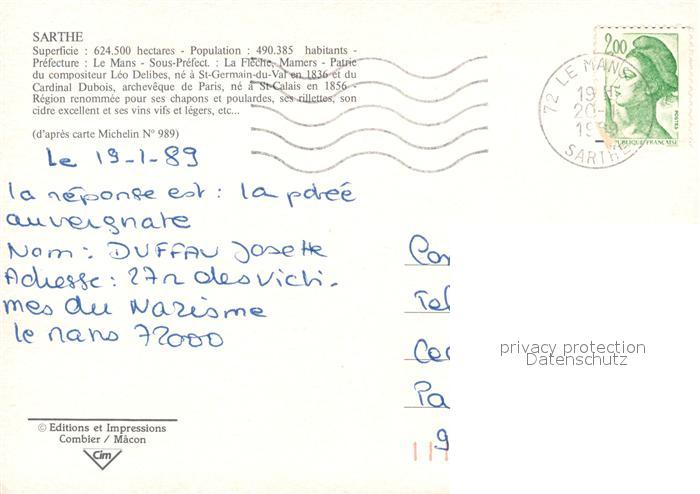 SARTHE
Superficie : 624.500 hectares - Population : 490.385 habitants -
Préfecture : Le Mans - Sous-Préfect. : La Flèche, Mamers - Patrie
du compositeur Léo Delibes, né à St-Germain-du-Val en 1836 et du
Cardinal Dubois, archevêque de Paris, né à St-Calais en 1856 -
Région renommée pour ses chapons et poulardes, ses rillettes, son
cidre excellent et ses vins vifs et légers, etc...
(d'après carte Michelin N° 989)
2,00
POSTES
REPUBLIQUE FRANCAISE
72 LE MANS
19 H
20-1
19
SARTHE
Le 19-1-89
la réponse est : la potée
auvergnate
Nom : DUFFAU Josette
Adresse : 27 r des victi-
mes du Nazisme
le mans 72000
Pa
9
privacy protection
Datenschutz
© Editions et Impressions
Combier / Mâcon
Cim